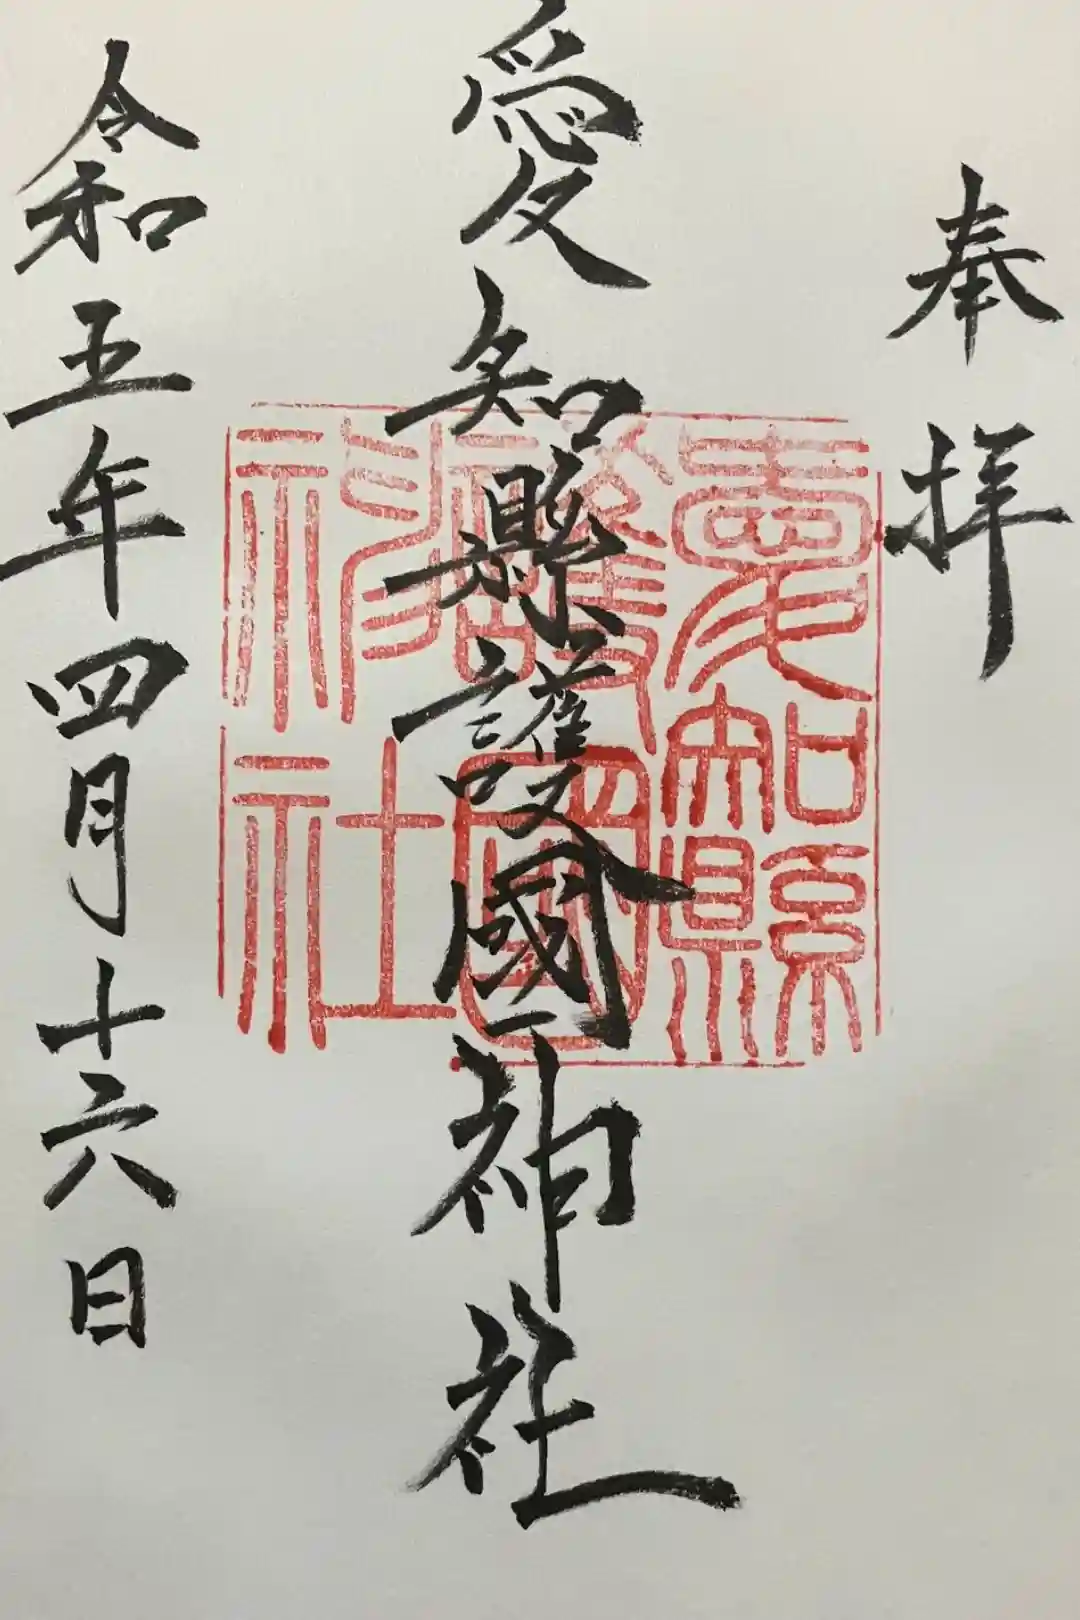 奉拝
愛知縣護國神社
愛知縣
護國神
社
令和五年四月十六日